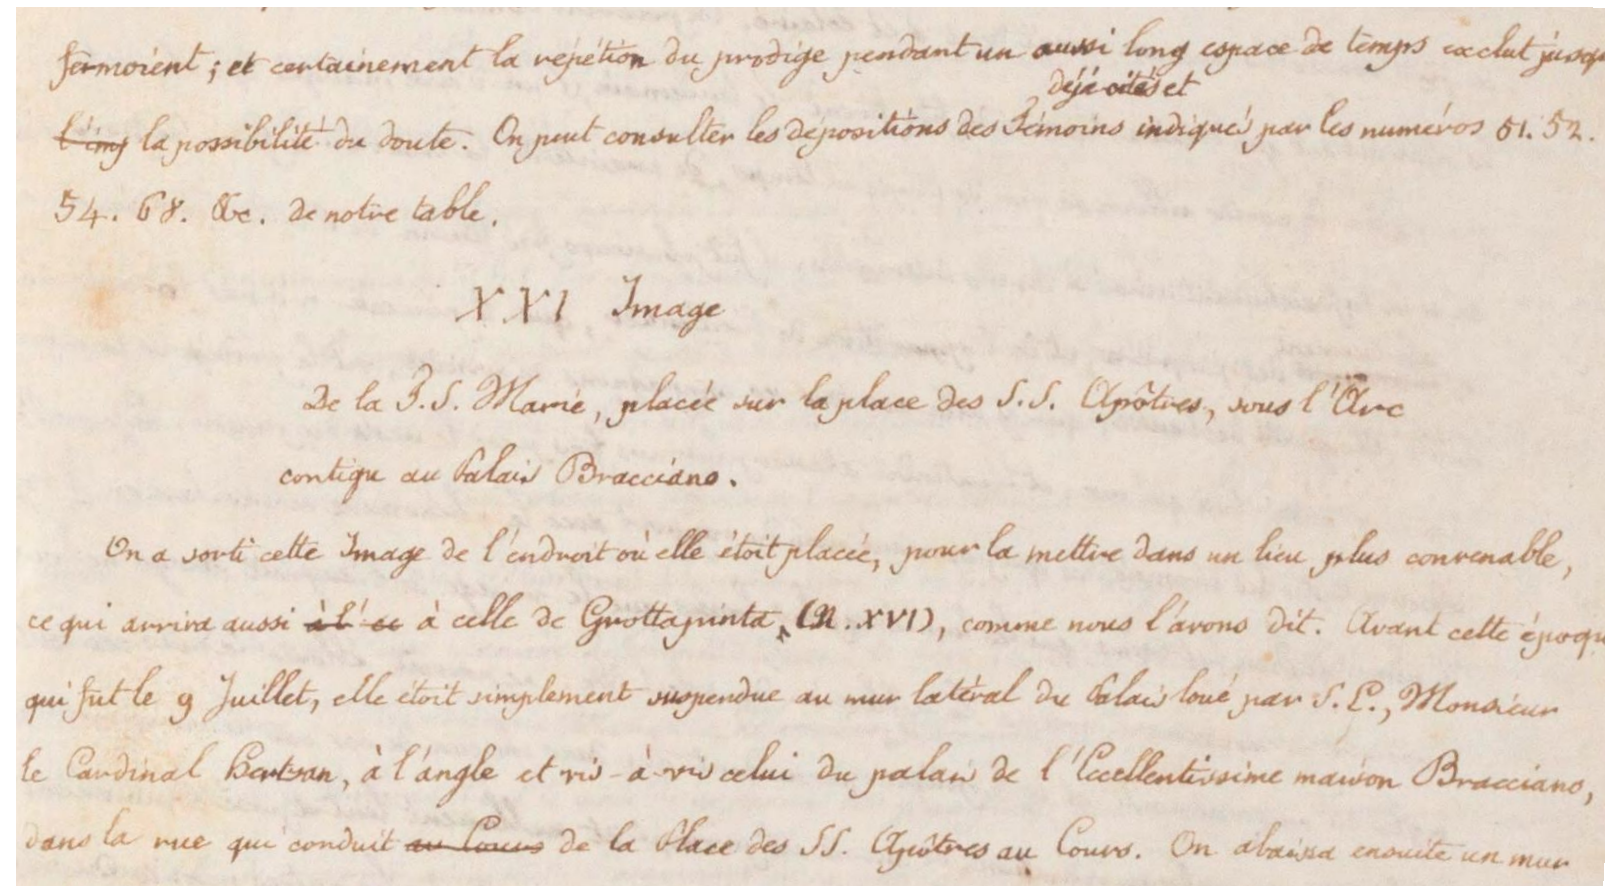 fermoient ; et certainement la répétion du prodige pendant un aussi long espace de temps exclut jusqu
déjà cités et
la possibilité du doute. On peut consulter les dépositions des Témoins indiqués par les numéros 51. 52.
54. 68. &c. de notre table.
XXI Image
De la T. S. Marie, placée sur la place des S.S. Apôtres, sous l'Arc
contigu au Palais Bracciano.
On a sorti cette Image de l'endroit où elle étoit placée, pour la mettre dans un lieu plus convenable,
ce qui arriva aussi à l' ce à celle de Grottapinta, (N. XVI), comme nous l'avons dit. Avant cette époqu
qui fut le 9 Juillet, elle étoit simplement suspendue au mur latéral du Palais loué par S. E., Monsieur
le Cardinal Hertzan, à l'angle et vis-à-vis celui du palais de l'Eccellentissime maison Bracciano,
dans la rue qui conduit au Cours de la Place des SS. Apôtres au Cours. On abaissa ensuite un mur